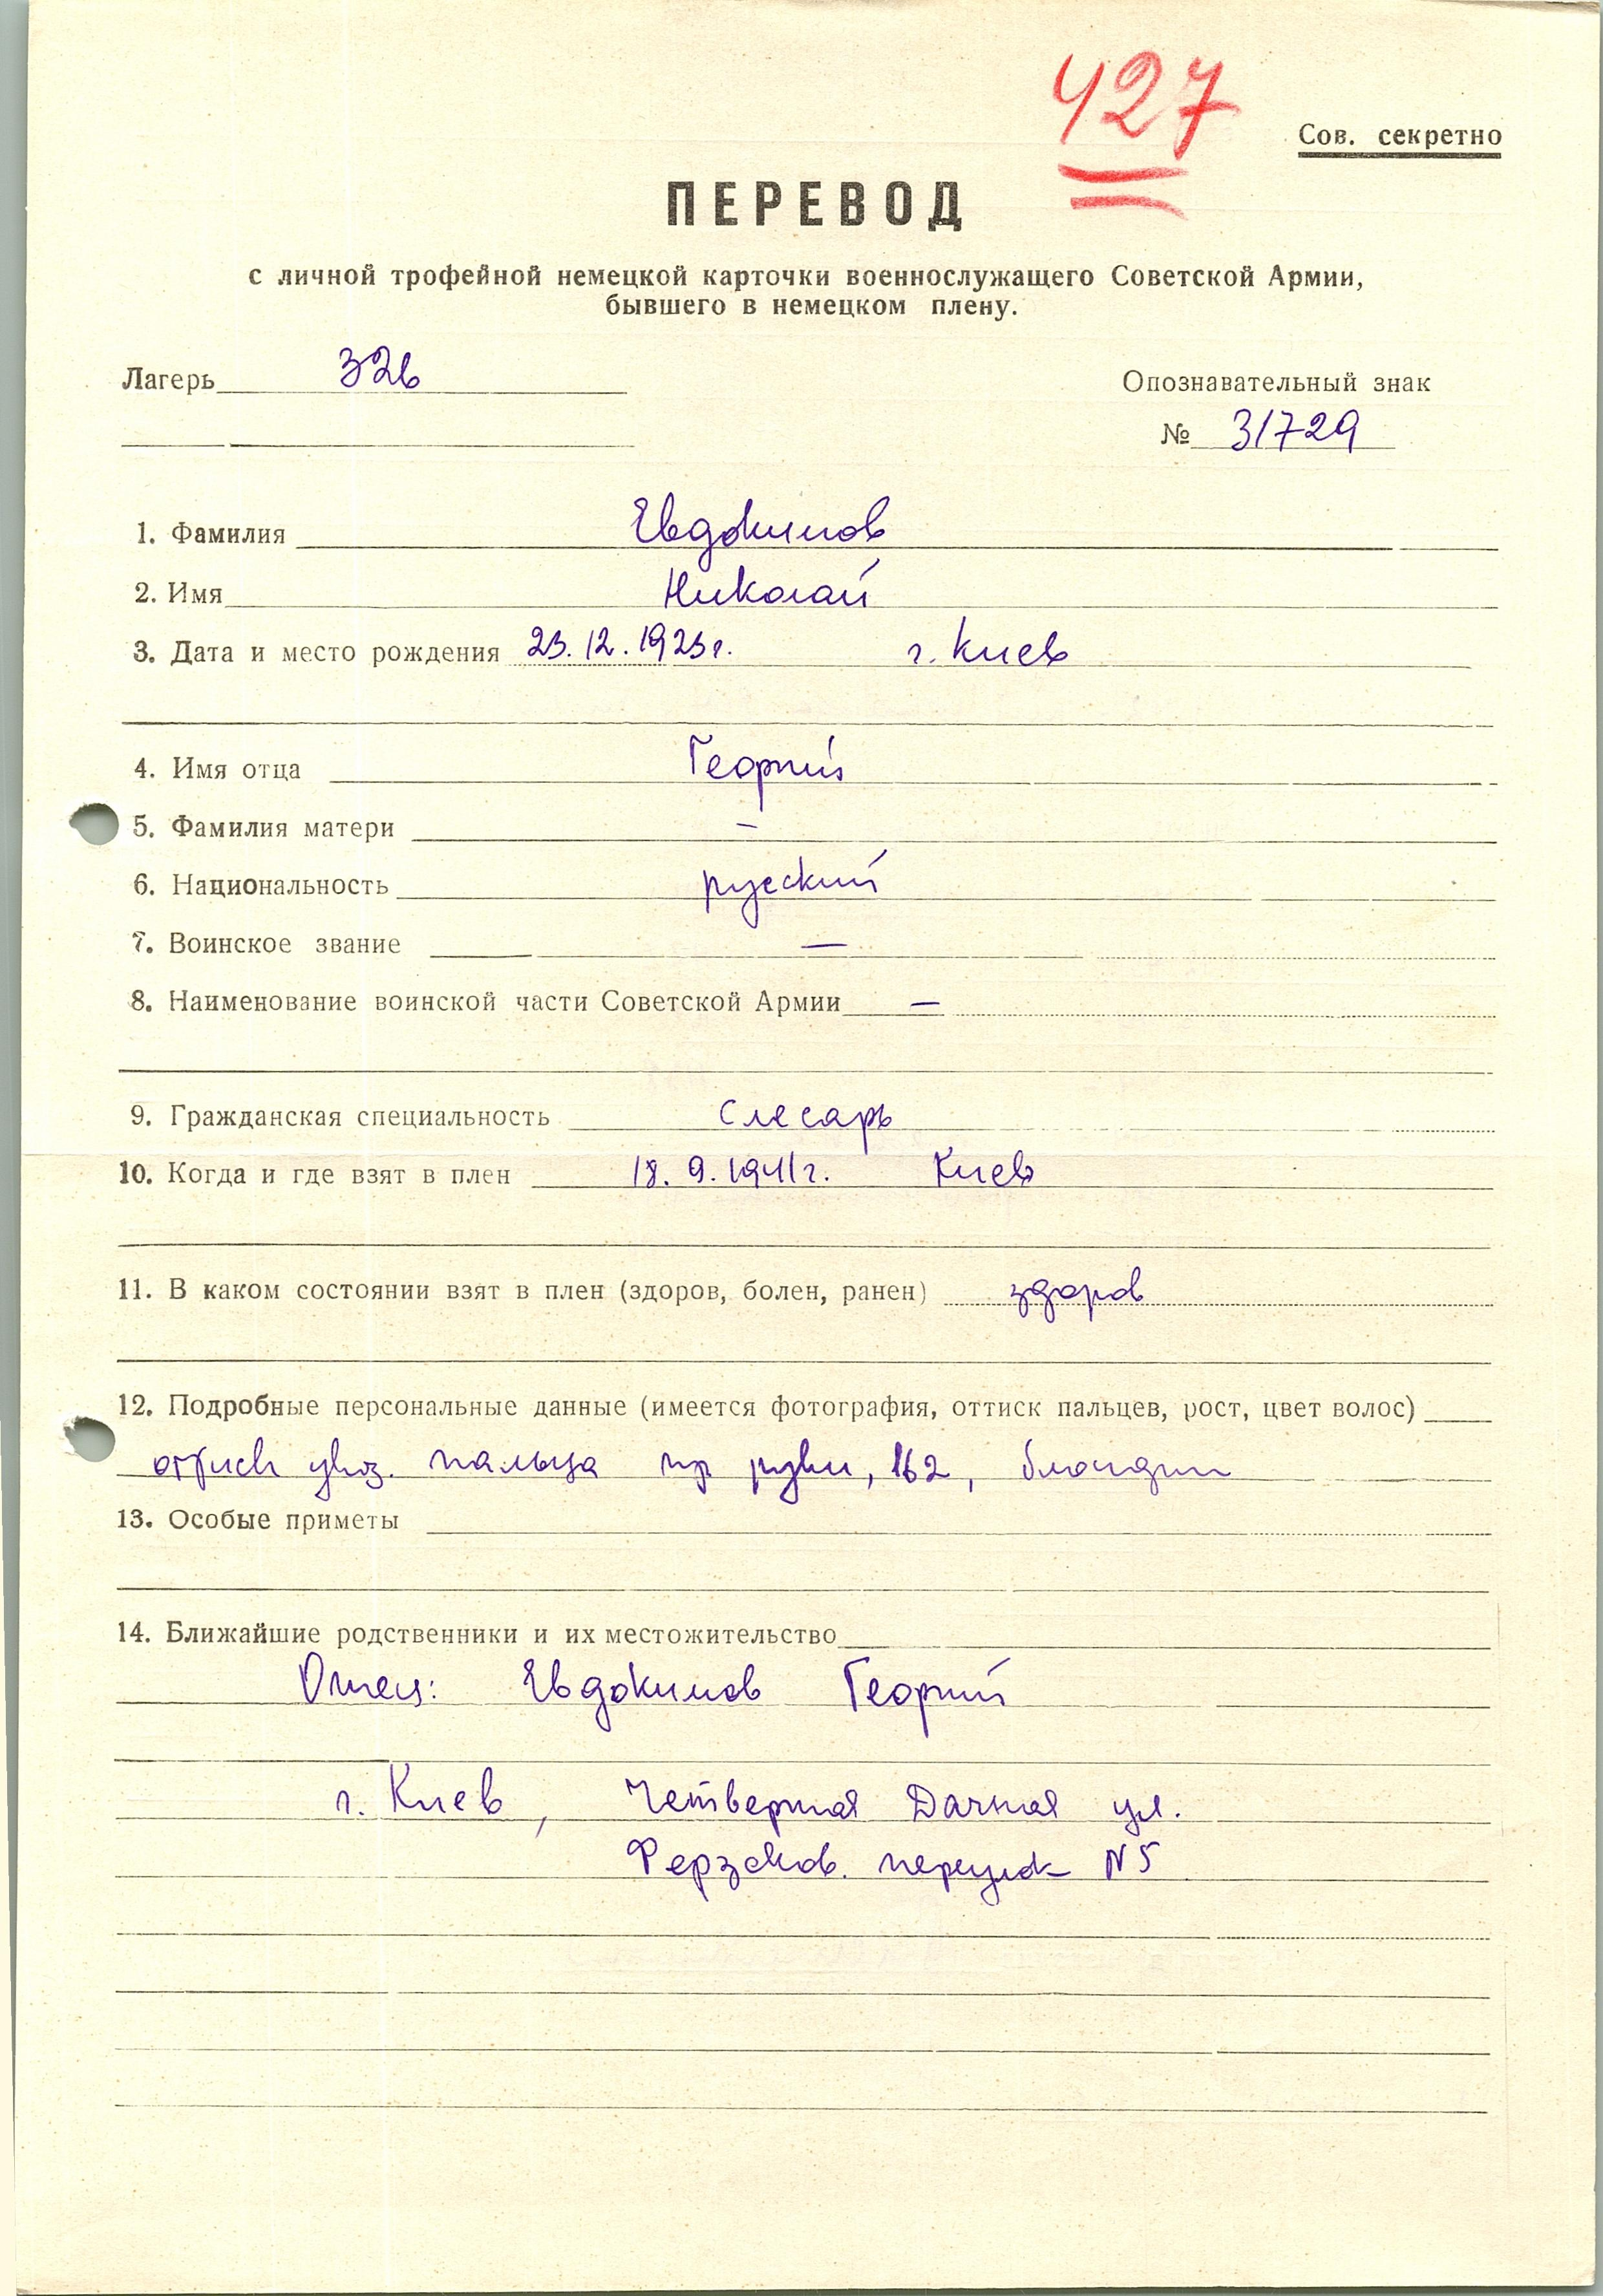 427
Сов. секретно
ПЕРЕВОД
с личной трофейной немецкой карточки военнослужащего Советской Армии,
бывшего в немецком плену.
Лагерь 326
Опознавательный знак
№ 31729
1. Фамилия Евдокимов
2. Имя Николай
3. Дата и место рождения 23.12.1923г. г. Киев
4. Имя отца Георгий
5. Фамилия матери –
6. Национальность русский
7. Воинское звание —
8. Наименование воинской части Советской Армии —
9. Гражданская специальность Слесарь
10. Когда и где взят в плен 18.9.1941г. Киев
11. В каком состоянии взят в плен (здоров, болен, ранен) здоров
12. Подробные персональные данные (имеется фотография, оттиск пальцев, рост, цвет волос)
указ. пальца пр руки, 162, блондин
13. Особые приметы
14. Ближайшие родственники и их местожительство
Отец: Евдокимов Георгий
г. Киев, Четвертая Дачная ул.
переулок N5